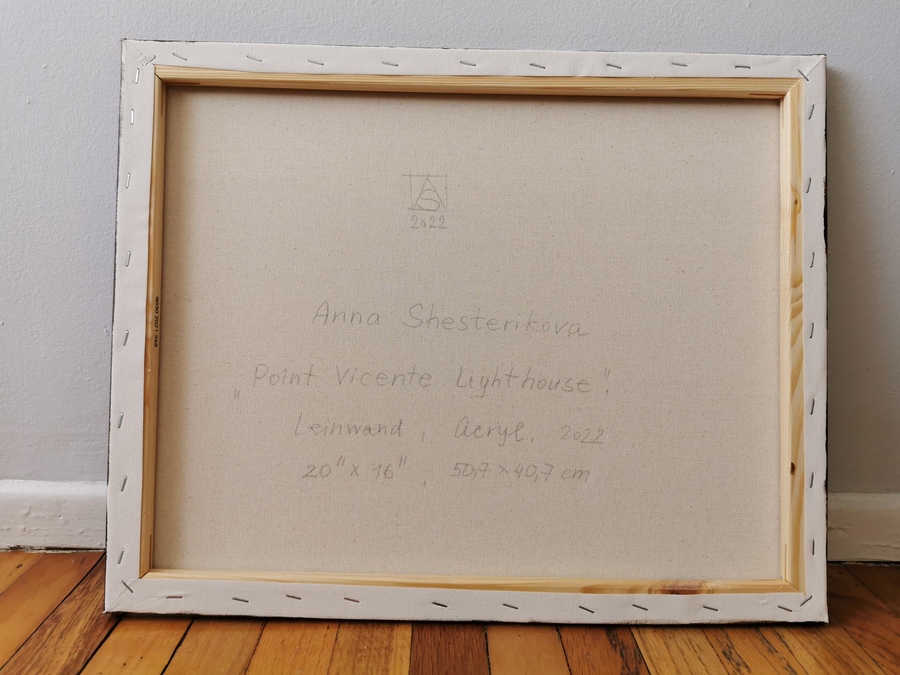 AS
2022
Anna Shesterikova
"Point Vicente Lighthouse",
Leinwand, Acryl, 2022
20"x 16", 50,7 x 40,7 cm